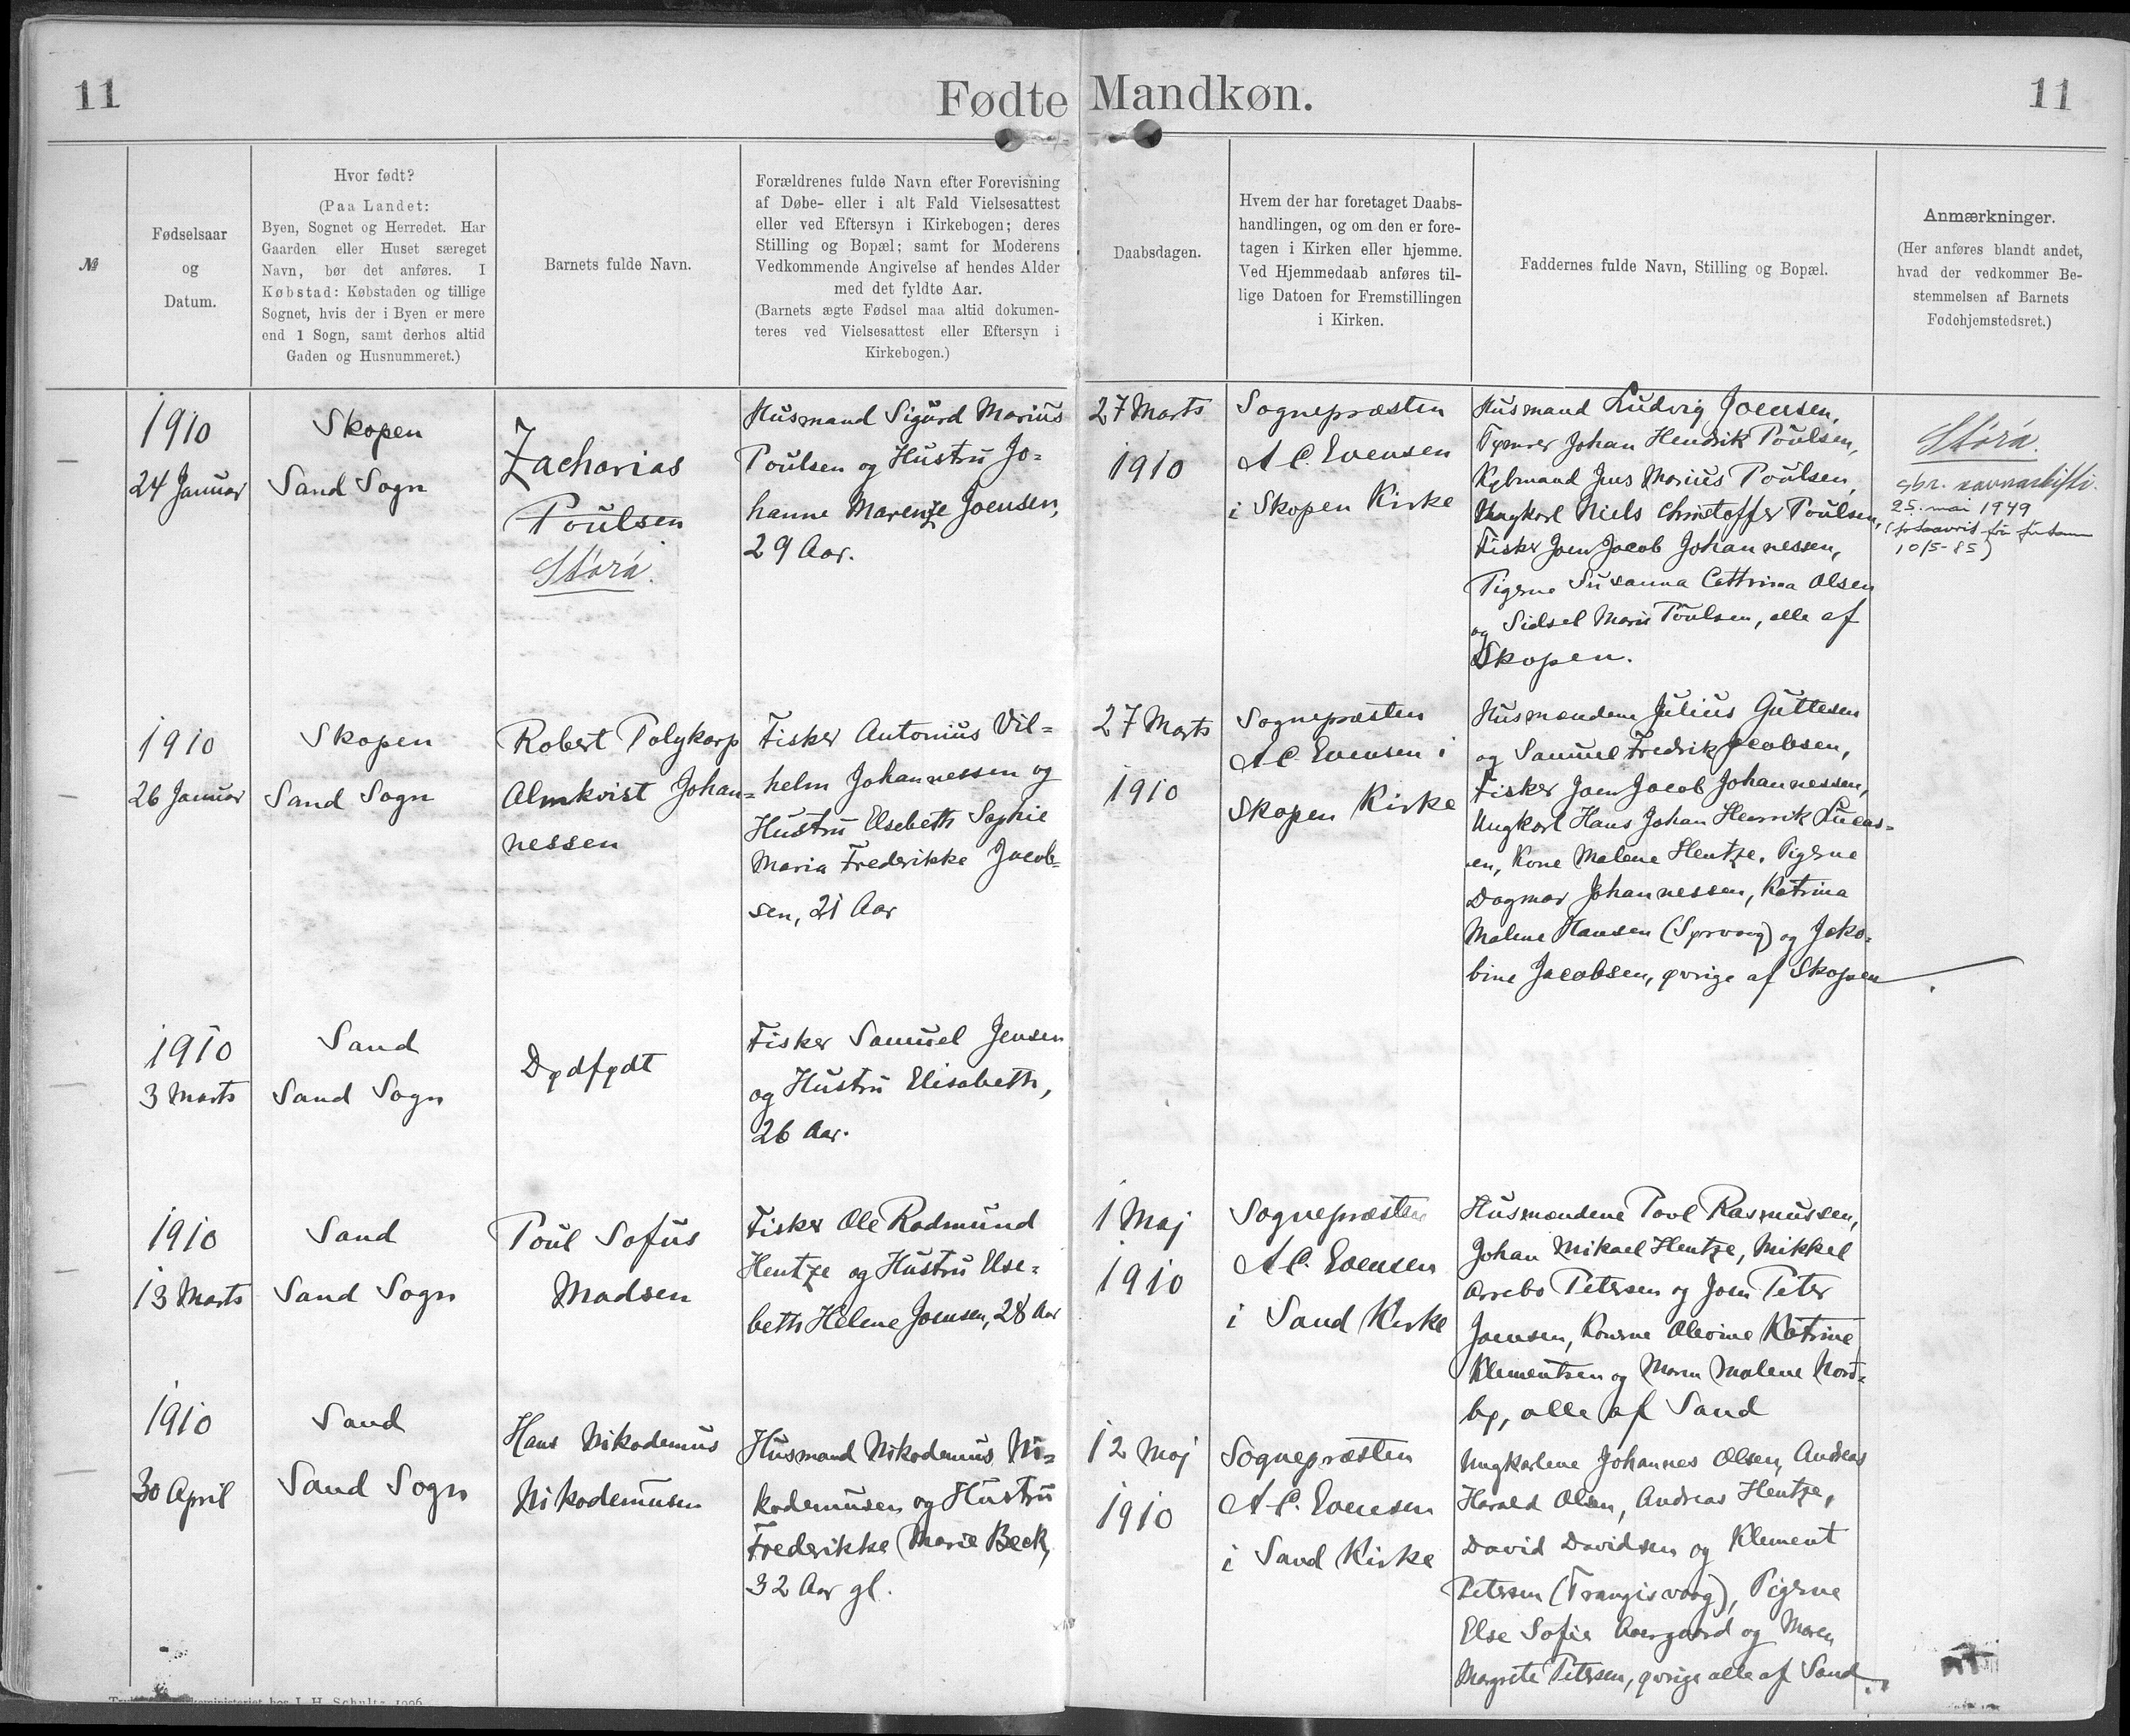 11
Fødte Mandkøn.
11
№
Fødselsaar
og
Datum.
Hvor født?
(Paa Landet:
Byen, Sognet og Herredet. Har
Gaarden eller Huset særeget
Navn, bør det anføres. I
Købstad: Købstaden og tillige
Sognet, hvis der i Byen er mere
end 1 Sogn, samt derhos altid
Gaden og Husnummeret.)
Barnets fulde Navn.
Forældrenes fulde Navn efter Forevisning
af Døbe- eller i alt Fald Vielsesattest
eller ved Eftersyn i Kirkebogen; deres
Stilling og Bopæl; samt for Moderens
Vedkommende Angivelse af hendes Alder
med det fyldte Aar.
(Barnets ægte Fødsel maa altid dokumen-
teres ved Vielsesattest eller Eftersyn i
Kirkebogen.)
Daabsdagen.
Hvem der har foretaget Daabs-
handlingen, og om den er fore-
tagen i Kirken eller hjemme.
Ved Hjemmedaab anføres til-
lige Datoen for Fremstillingen
i Kirken.
Faddernes fulde Navn, Stilling og Bopæl.
Anmærkninger.
(Her anføres blandt andet,
hvad der vedkommer Be-
stemmelsen af Barnets
Fødehjemstedsret.)
1910
24 Januar
Skopen
Sand Sogn
Zacharias
Poulsen
Stórá.
Husmand Sigurd Marius
Poulsen og Hustru Jo-
hanne Marentze Joensen,
29 Aar.
27 Marts
1910
Sognepræsten
A C. Evensen
i Skopen Kirke
Husmand Ludvig Joensen,
Tømrer Johan Hendrik Poulsen,
Købmand Jens Marius Poulsen,
Ungkarl Niels Christoffer Poulsen,
Fisker Joen Jacob Johannessen,
Pigerne Susanna Cattrina Olsen
og Sidsel Marie Poulsen, alle af
Skopen.
Stórá.
sbr. navnarbrævi
25. mai 1949
10/5-85)
1910
26 Januar
Skopen
Sand Sogn
Robert Polykarp
Almkvist Johan-
nessen
Fisker Antonius Vil-
helm Johannessen og
Hustru Elsebeth Sophie
Maria Frederikke Jacob-
sen, 21 Aar
27 Marts
1910
Sognepræsten
A C. Evensen i
Skopen Kirke
Husmændene Julius Guttesen
og Samuel Fredrik Jacobsen,
Fisker Joen Jacob Johannessen,
Ungkarl Hans Johan Henrik Lucas-
en, Kone Malene Hentze, Pigerne
Dagmar Johannessen, Katrina
Malene Hansen (Sørvaag) og Jako-
bine Jacobsen, øvrige af Skopen
1910
3 Marts
Sand
Sand Sogn
Dødfødt
Fisker Samuel Jensen
og Hustru Elisabeth,
26 Aar.
1910
13 Marts
Sand
Sand Sogn
Poul Sofus
Madsen
Fisker Ole Radmund
Hentze og Hustru Else-
beth Helene Joensen, 28 Aar
1 Maj
1910
Sognepræsten
A C. Evensen
i Sand Kirke
Husmændene Povl Rasmussen,
Johan Mikael Hentze, Mikkel
Arrebo Petersen og Joen Peter
Joensen, Konerne Olevine Katrine
Klementsen og Maren Malene Nord-
bø, alle af Sand
1910
30 April
Sand
Sand Sogn
Hans Nikodemus
Nikodemusen
Husmand Nikodemus Ni-
kodemusen og Hustru
Frederikke Marie Beck,
32 Aar gl.
12 Maj
1910
Sognepræsten
A C. Evensen
i Sand Kirke
Ungkarlene Johannes Olsen, Andreas
Harald Olsen, Andreas Hentze,
David Davidsen og Klement
Petersen (Trangisvaag), Pigerne
Else Sofie Aaergaard og Maren
Margrete Petersen, øvrige alle af Sand.
J. H. Schultz 1906